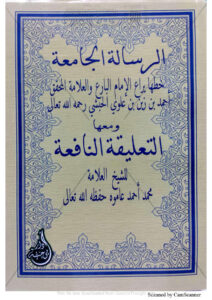 الرسالة الجامعة
خطها يراع الإمام البارع والعلامة المحقق
أحمد بن زين بن علوي الحبشي رحمه الله تعالى
ومعها
التعليقة النافعة
للشيخ العلامة
محمد أحمد عاموه حفظه الله تعالى
Scanned by CamScanner